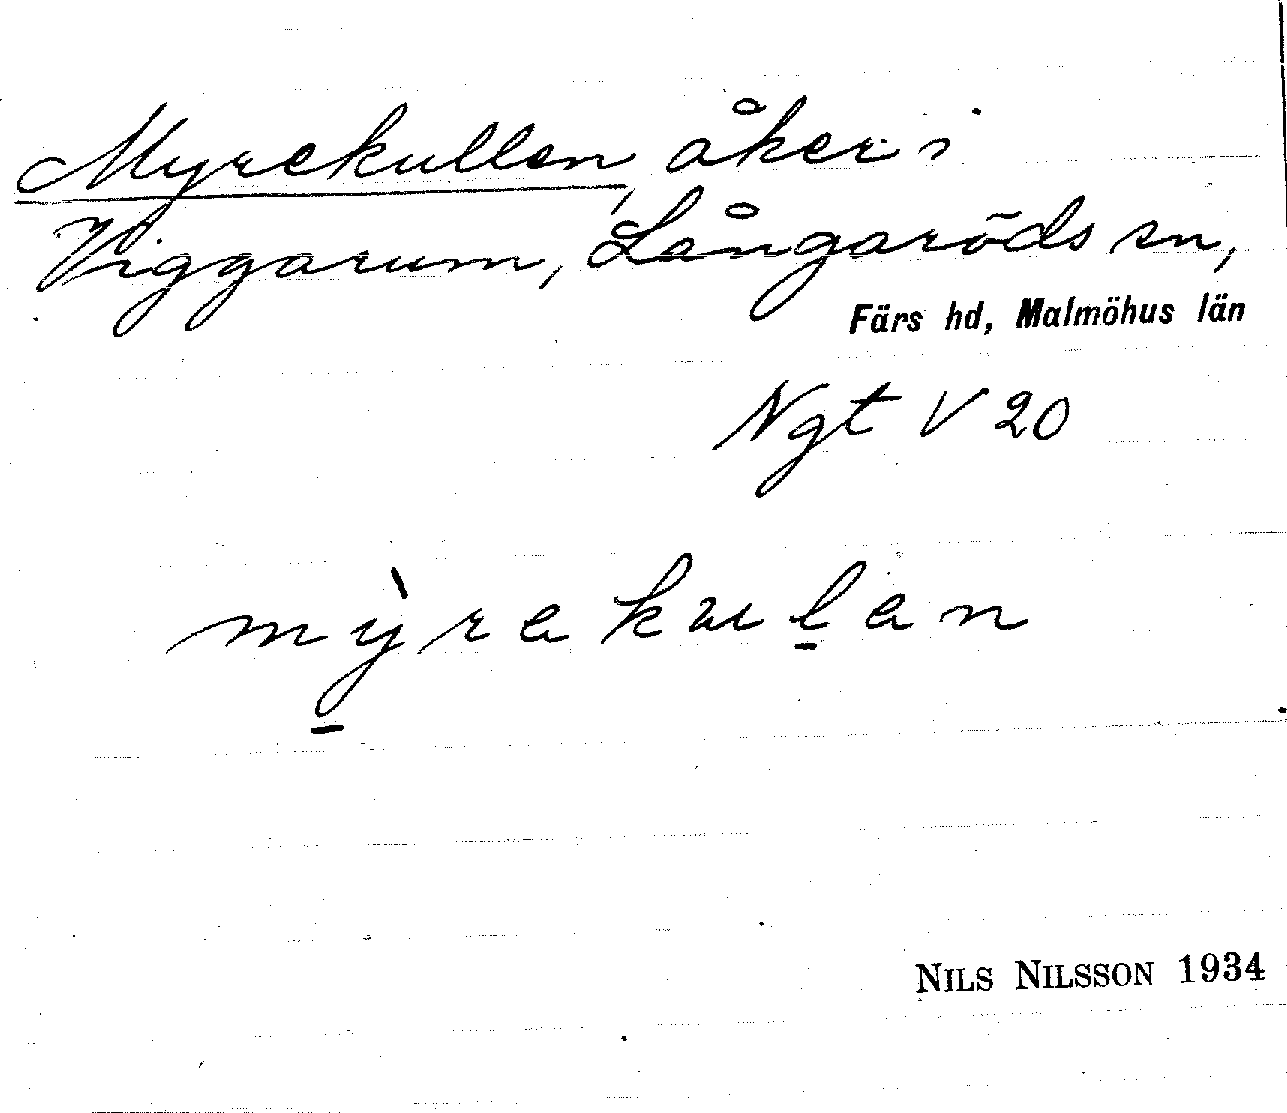 Myrekullen, åker i
Viggarum, Långaröds sn,
Färs hd, Malmöhus län
Ngt V 20
mỳ̠rakul̠an
NILS NILSSON 1934